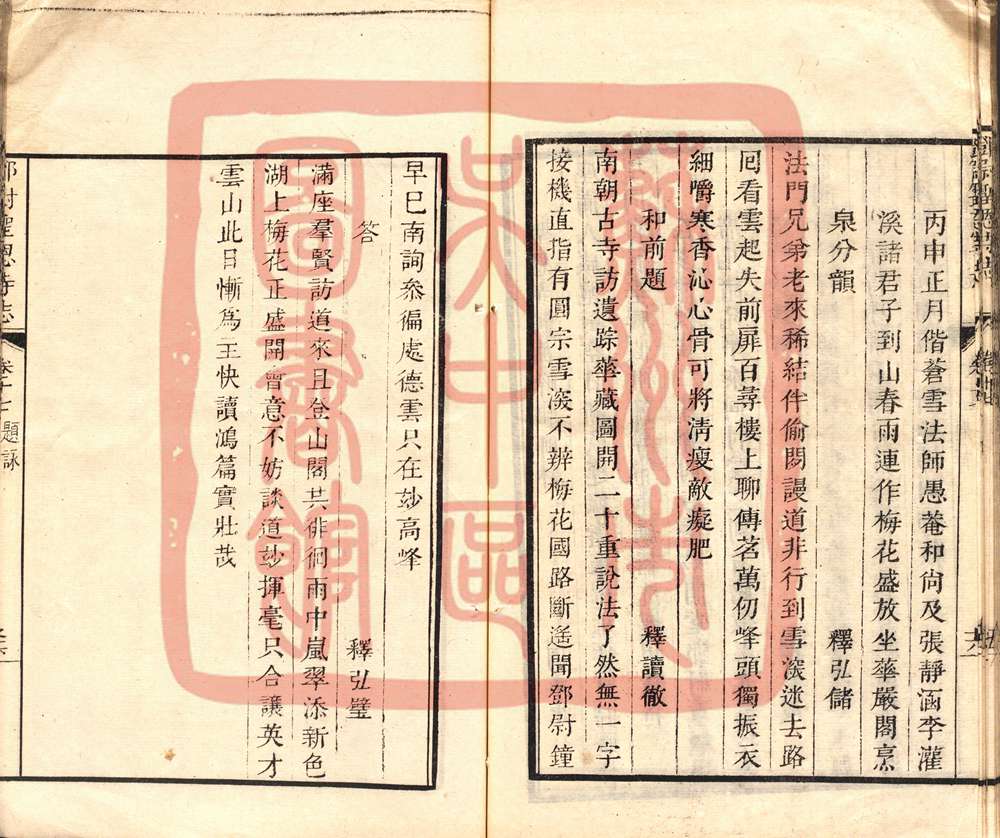 丙申正月偕蒼雪法師愚菴和尙及張靜涵李灌
溪諸君子到山春雨連作梅花盛放坐華嚴閣烹
泉分韻
釋弘儲
法門兄弟老來稀結伴偷閱謾道非行到雪深迷去路
囘看雲起失前扉百尋樓上聊傳茗萬仞峰頭獨振衣
細嚼寒香沁心骨可將淸瘦敵癡肥
和前題
釋讀徹
南朝古寺訪遺踪華藏圖開二十重說法了然無一字
接機直指有圓宗雪深不辨梅花國路斷遙聞鄧尉鐘
早巳南詢叅徧處德雲只在玅高峰
答
釋弘璧
滿座羣賢訪道來且登山閣共徘徊雨中嵐翠添新色
湖上梅花正盛開會意不妨談道玅揮毫只合讓英才
雲山此日慚爲主快讀鴻篇實壯哉
鄧尉聖恩寺志
卷十七
題詠